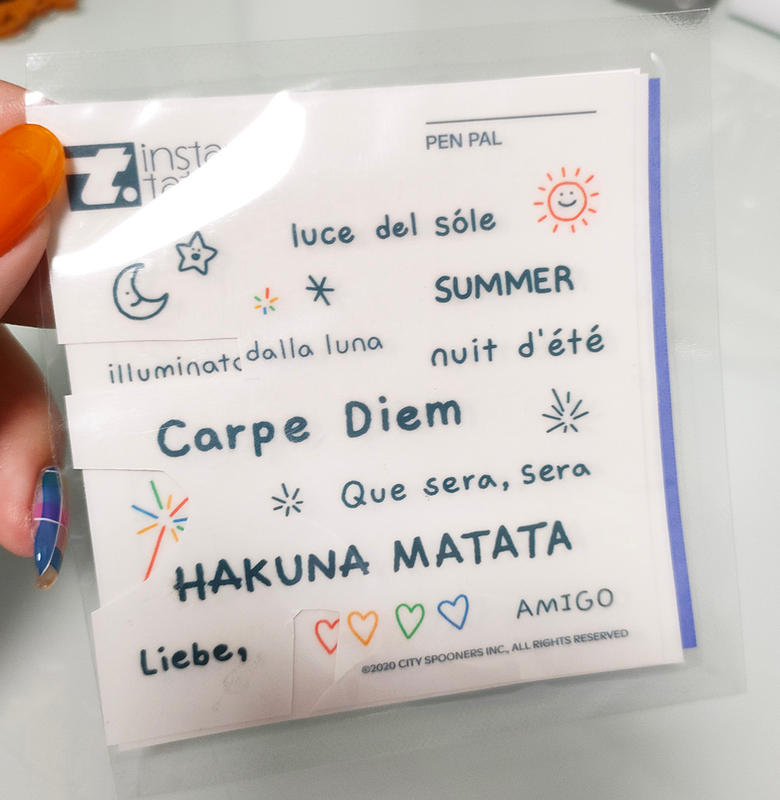 t. insta
PEN PAL
luce del sóle
SUMMER
illuminato dalla luna
nuit d'été
Carpe Diem
Que sera, sera
HAKUNA MATATA
AMIGO
Liebe,
©2020 CITY SPOONERS INC., ALL RIGHTS RESERVED